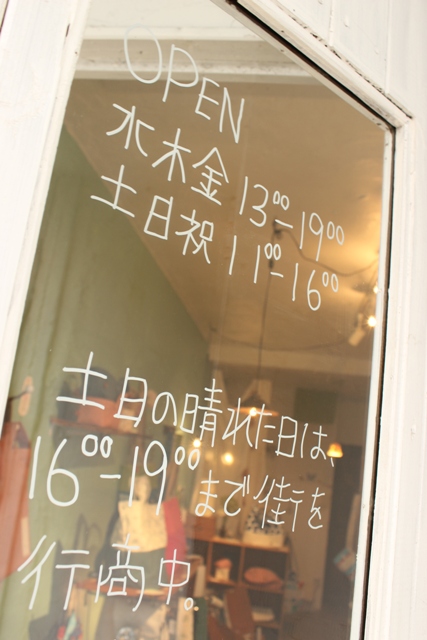 OPEN
水木金 13:00-19:00
土日祝 11:00-16:00
土日の晴れた日は、
16:00-19:00まで街を
行商中。